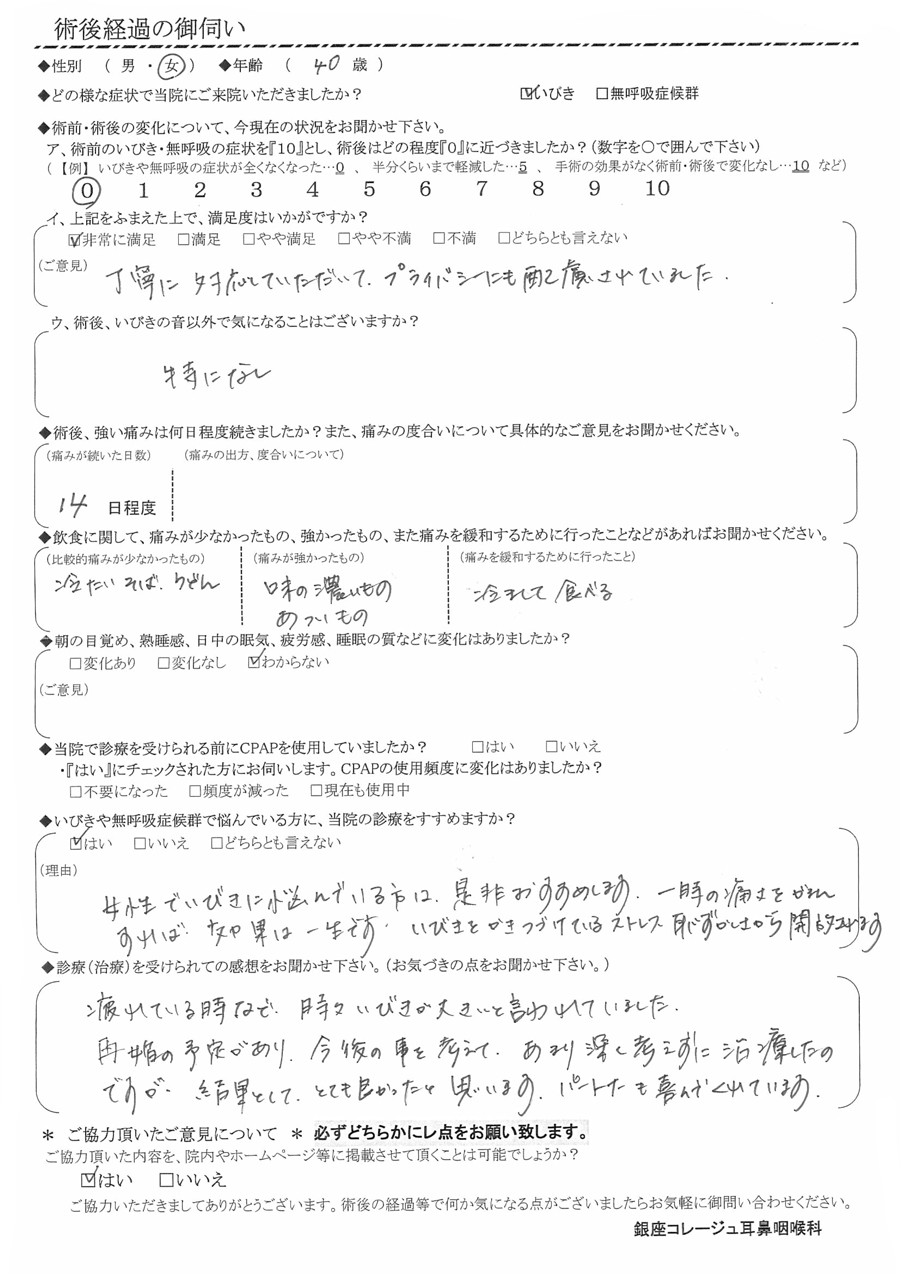 術後経過の御伺い
◆性別 ( 男 ・ 女 ) ◆年齢 ( 40 歳 )
◆どの様な症状で当院にご来院いただきましたか? ☑いびき □無呼吸症候群
◆術前・術後の変化について、今現在の状況をお聞かせ下さい。
ア、術前のいびき・無呼吸の症状を『10』とし、術後はどの程度『0』に近づきましたか?(数字を〇で囲んで下さい)
( 【例】 いびきや無呼吸の症状が全くなくなった…0 、 半分くらいまで軽減した…5 、 手術の効果がなく術前・術後で変化なし…10 など)
0 1 2 3 4 5 6 7 8 9 10
イ、上記をふまえた上で、満足度はいかがですか?
☑非常に満足 □満足 □やや満足 □やや不満 □不満 □どちらとも言えない
(ご意見) 丁寧に対応していただいて、プライバシーにも配慮されていました。
ウ、術後、いびきの音以外で気になることはございますか?
特になし
◆術後、強い痛みは何日程度続きましたか?また、痛みの度合いについて具体的なご意見をお聞かせください。
(痛みが続いた日数) (痛みの出方、度合いについて)
14 日程度
◆飲食に関して、痛みが少なかったもの、強かったもの、また痛みを緩和するために行ったことなどがあればお聞かせください。
(比較的痛みが少なかったもの) (痛みが強かったもの) (痛みを緩和するために行ったこと)
冷たいそば、うどん 味の濃いもの 冷まして食べる
あついもの
◆朝の目覚め、熟睡感、日中の眠気、疲労感、睡眠の質などに変化はありましたか?
□変化あり □変化なし ☑わからない
(ご意見)
◆当院で診療を受けられる前にCPAPを使用していましたか? □はい □いいえ
・『はい』にチェックされた方にお伺いします。CPAPの使用頻度に変化はありましたか?
□不要になった □頻度が減った □現在も使用中
◆いびきや無呼吸症候群で悩んでいる方に、当院の診療をすすめますか?
☑はい □いいえ □どちらとも言えない
(理由)
女性でいびきに悩んでいる方は、是非おすすめします。一時の痛さをがまん
すれば、効果は一生です。いびきをかきつづけているストレス 恥ずかしさから開放されます
◆診療(治療)を受けられての感想をお聞かせ下さい。(お気づきの点をお聞かせ下さい。)
疲れている時など、時々いびきが大きいと言われていました。
再婚の予定があり、今後の事を考えて、あまり深く考えずに治療したの
ですが、結果として、とても良かったと思います。パートナーも喜んでくれています。
* ご協力頂いたご意見について * 必ずどちらかにレ点をお願い致します。
ご協力頂いた内容を、院内やホームページ等に掲載させて頂くことは可能でしょうか?
☑はい □いいえ
ご協力いただきましてありがとうございます。術後の経過等で何か気になる点がございましたらお気軽に御問い合わせください。
銀座コレージュ耳鼻咽喉科